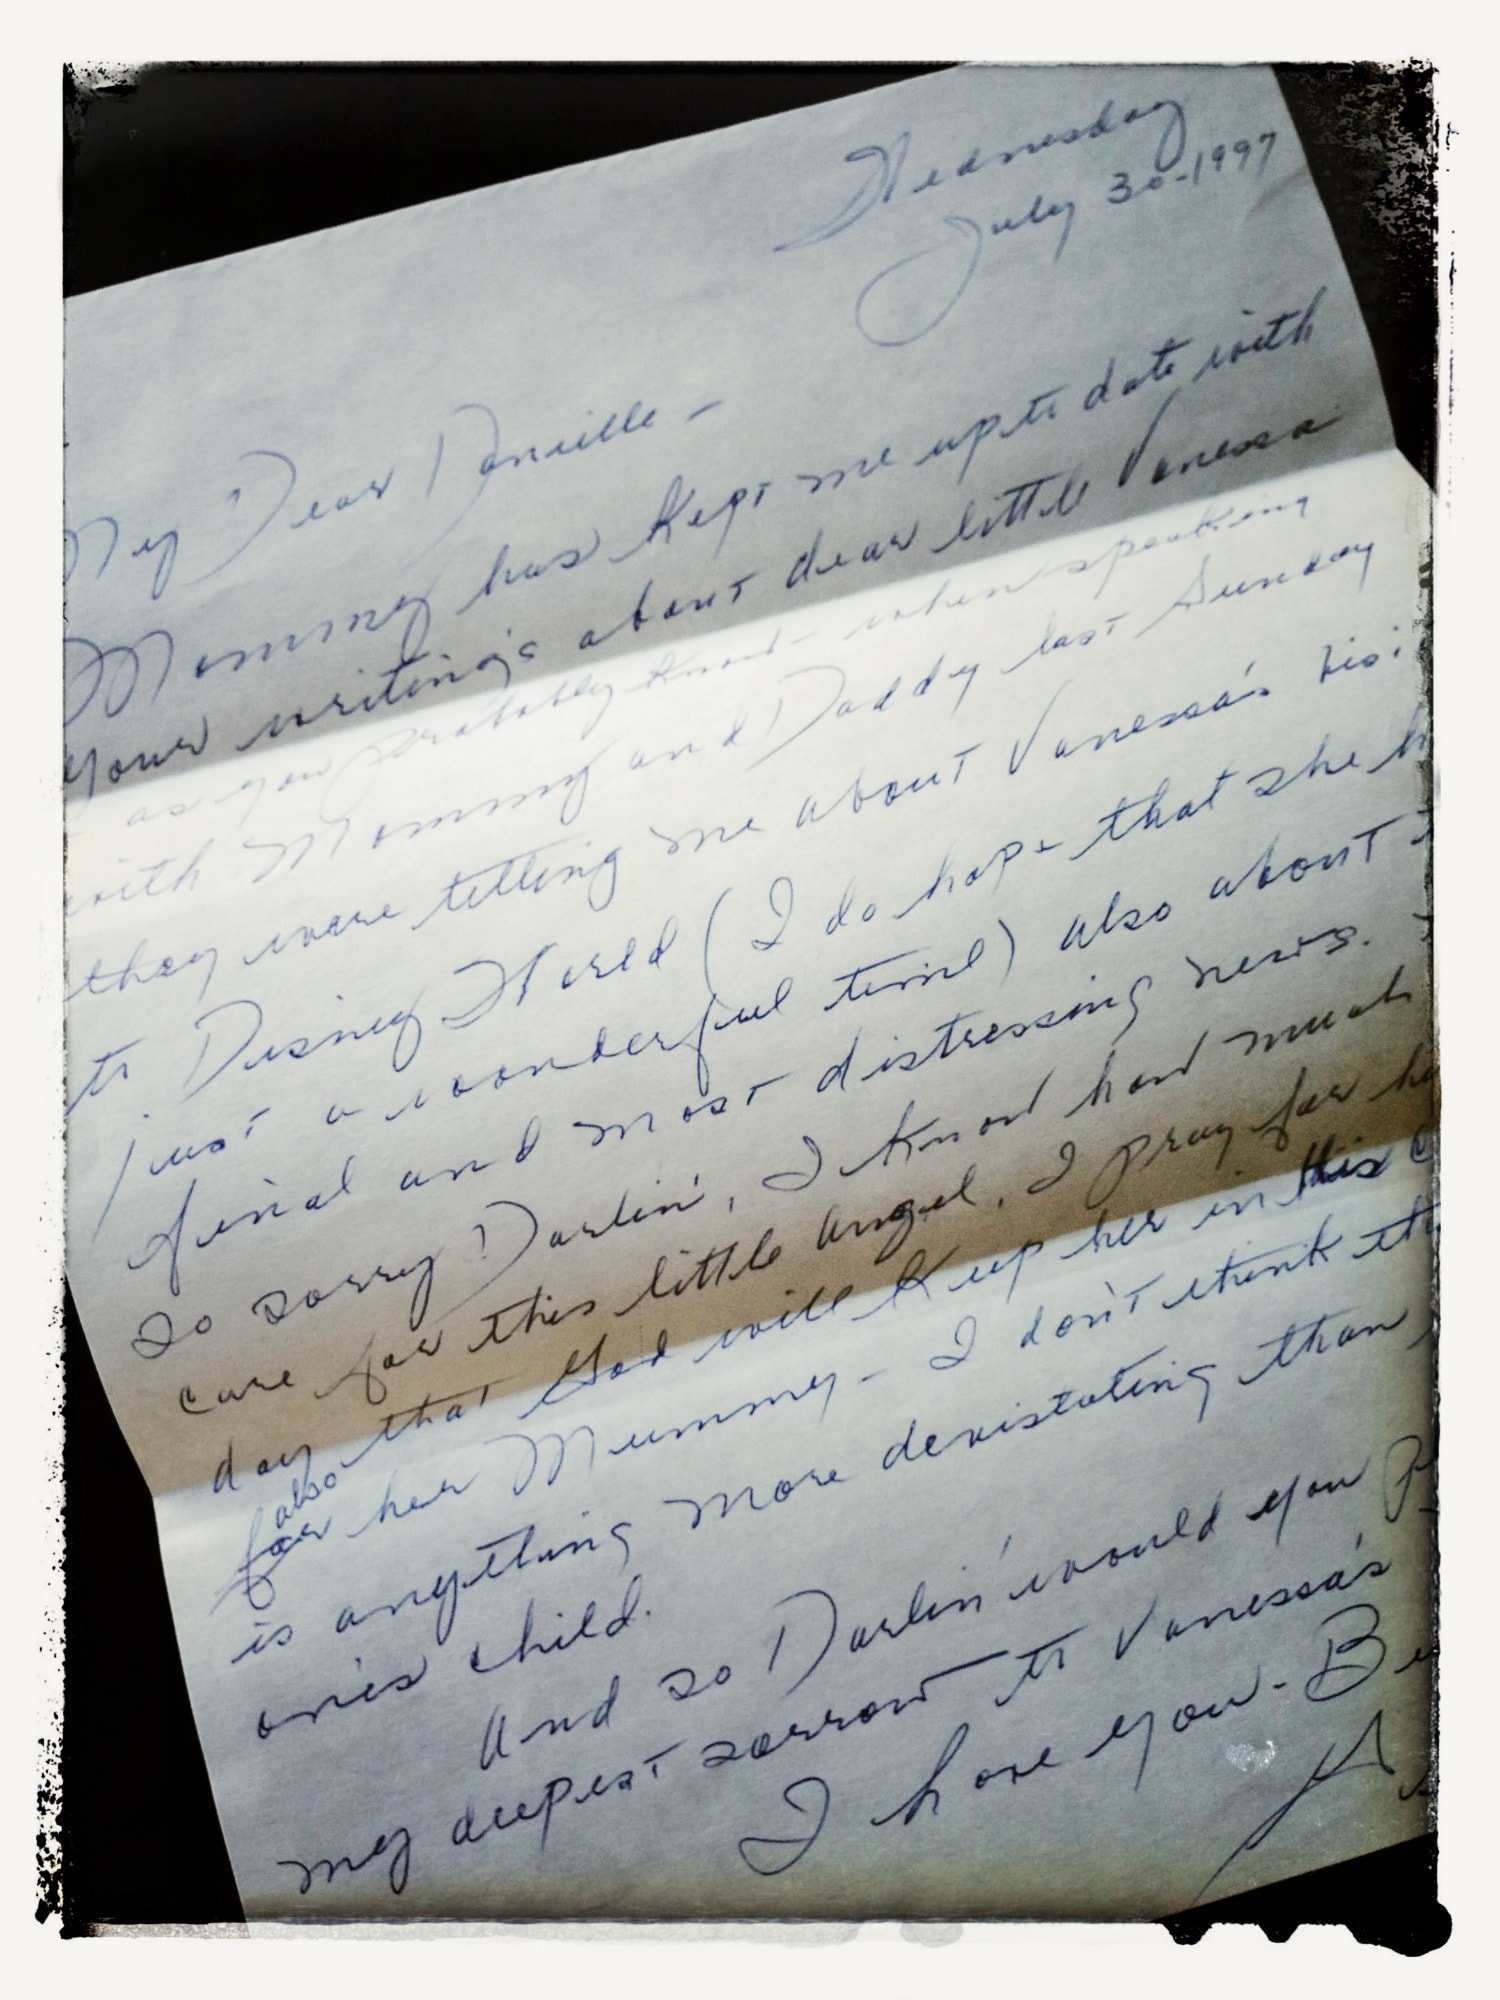 Wednesday
July 30-1997
My Dear Danielle -
Mommy has kept me up to date with
your writing's about dear little Vanessa
as you probably know - when speaking
with Mommy and Daddy last Sunday
they were telling me about Vanessa's
to Disney World (I do hope that she
just a wonderful time) also about
final and most distressing news.
so sorry Darlin', I know how much
care for this little angel. I pray for
day that God will keep her in this
also
for her Mummy - I don't think
is anything more devistating than
one's child.
And so Darlin' would you
my deepest sorrow to Vanessa's
I love you -